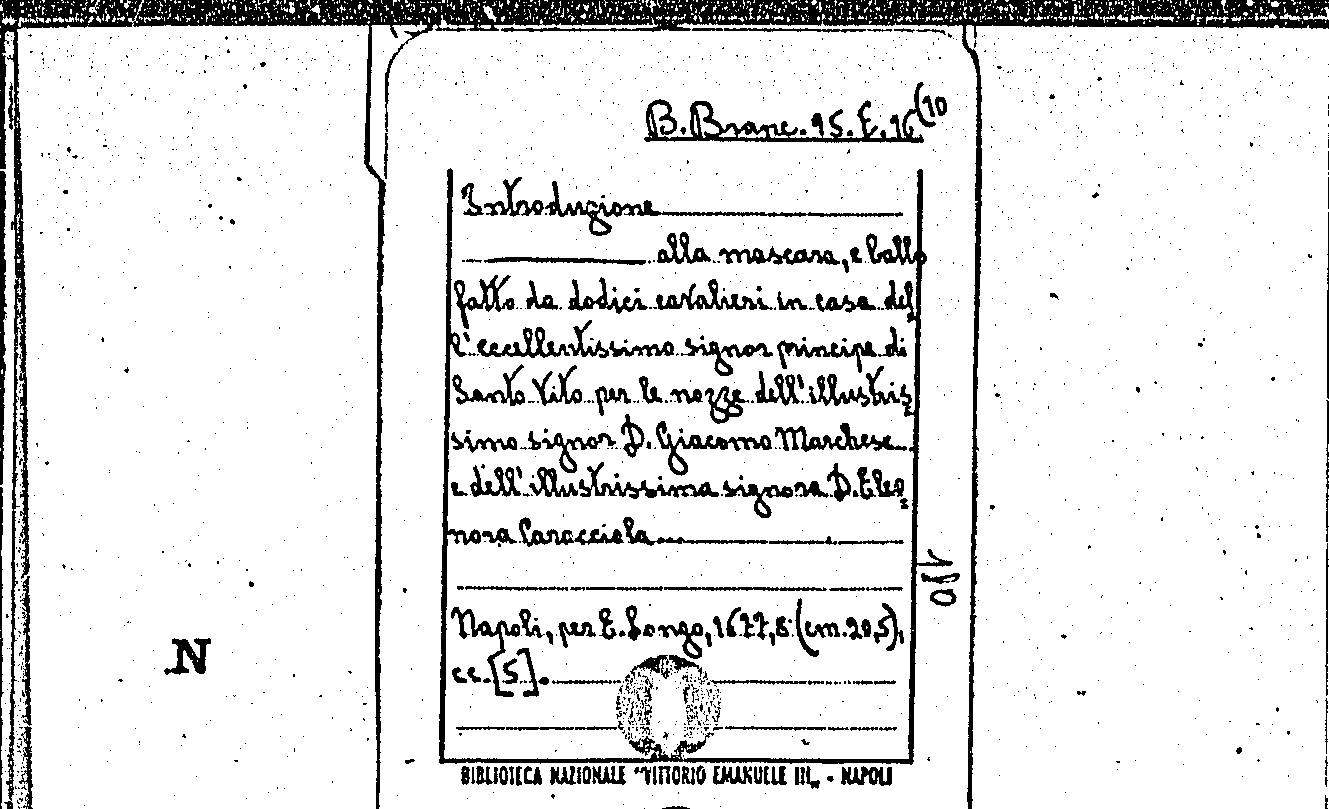 B. Branc. 95. E. 96 (10
Introduzione
alla mascara, e ballo
fatto da dodici cavalieri in casa del
l'eccellentissimo signor principe di
Santo Vito per le nozze dell'illustris
simo signor D. Giacomo Marchese
e dell'illustrissima signora D. Eleo
nora Caracciola...
Napoli, per E. Longo, 1677, 8. (cm. 20,5),
cc. [5].
BIBLIOTECA NAZIONALE "VITTORIO EMANUELE III„ - NAPOLI
N